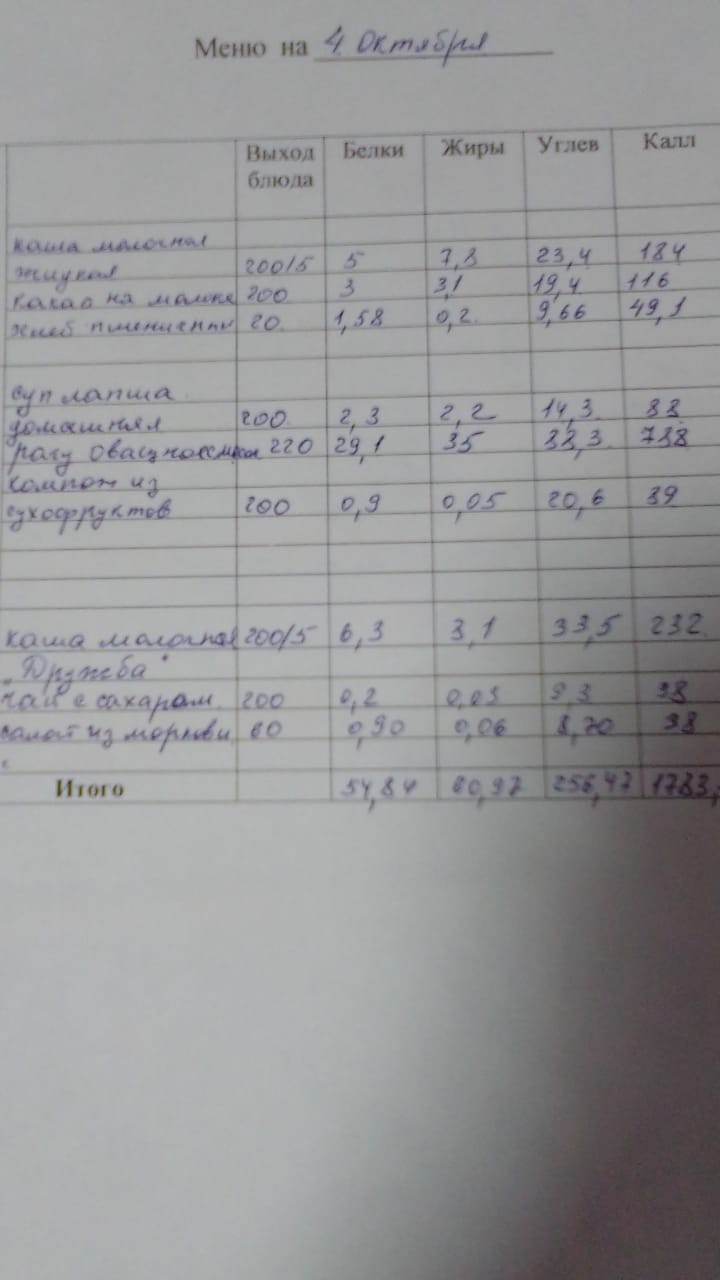 Меню на 4 Октября
Выход блюда Белки Жиры Углев Калл
каша молочная
жидкая 200/5 5 7,3 23,4 184
какао на молоке 200 3 3,1 19,4 116
хлеб пшеничн 20 1,58 0,2 9,66 49,1
суп лапша
домашняя 200 2,3 2,2 14,3 88
рагу 220 29,1 35 738
компот из
сухофруктов 200 0,9 0,05 20,6 39
каша молочная 200/5 6,3 3,1 33,5 232
"Дружба"
чай с сахаром 200 0,2 0,03 9,3 38
салат из моркови 60 0,90 0,06 8,70 98
Итого 54,84 60,97 256,47 1783,